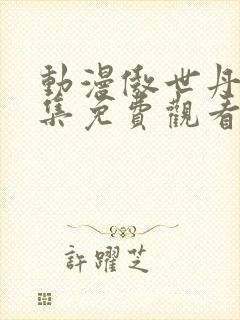 動漫傲世丹
集免費觀看
許躍芝